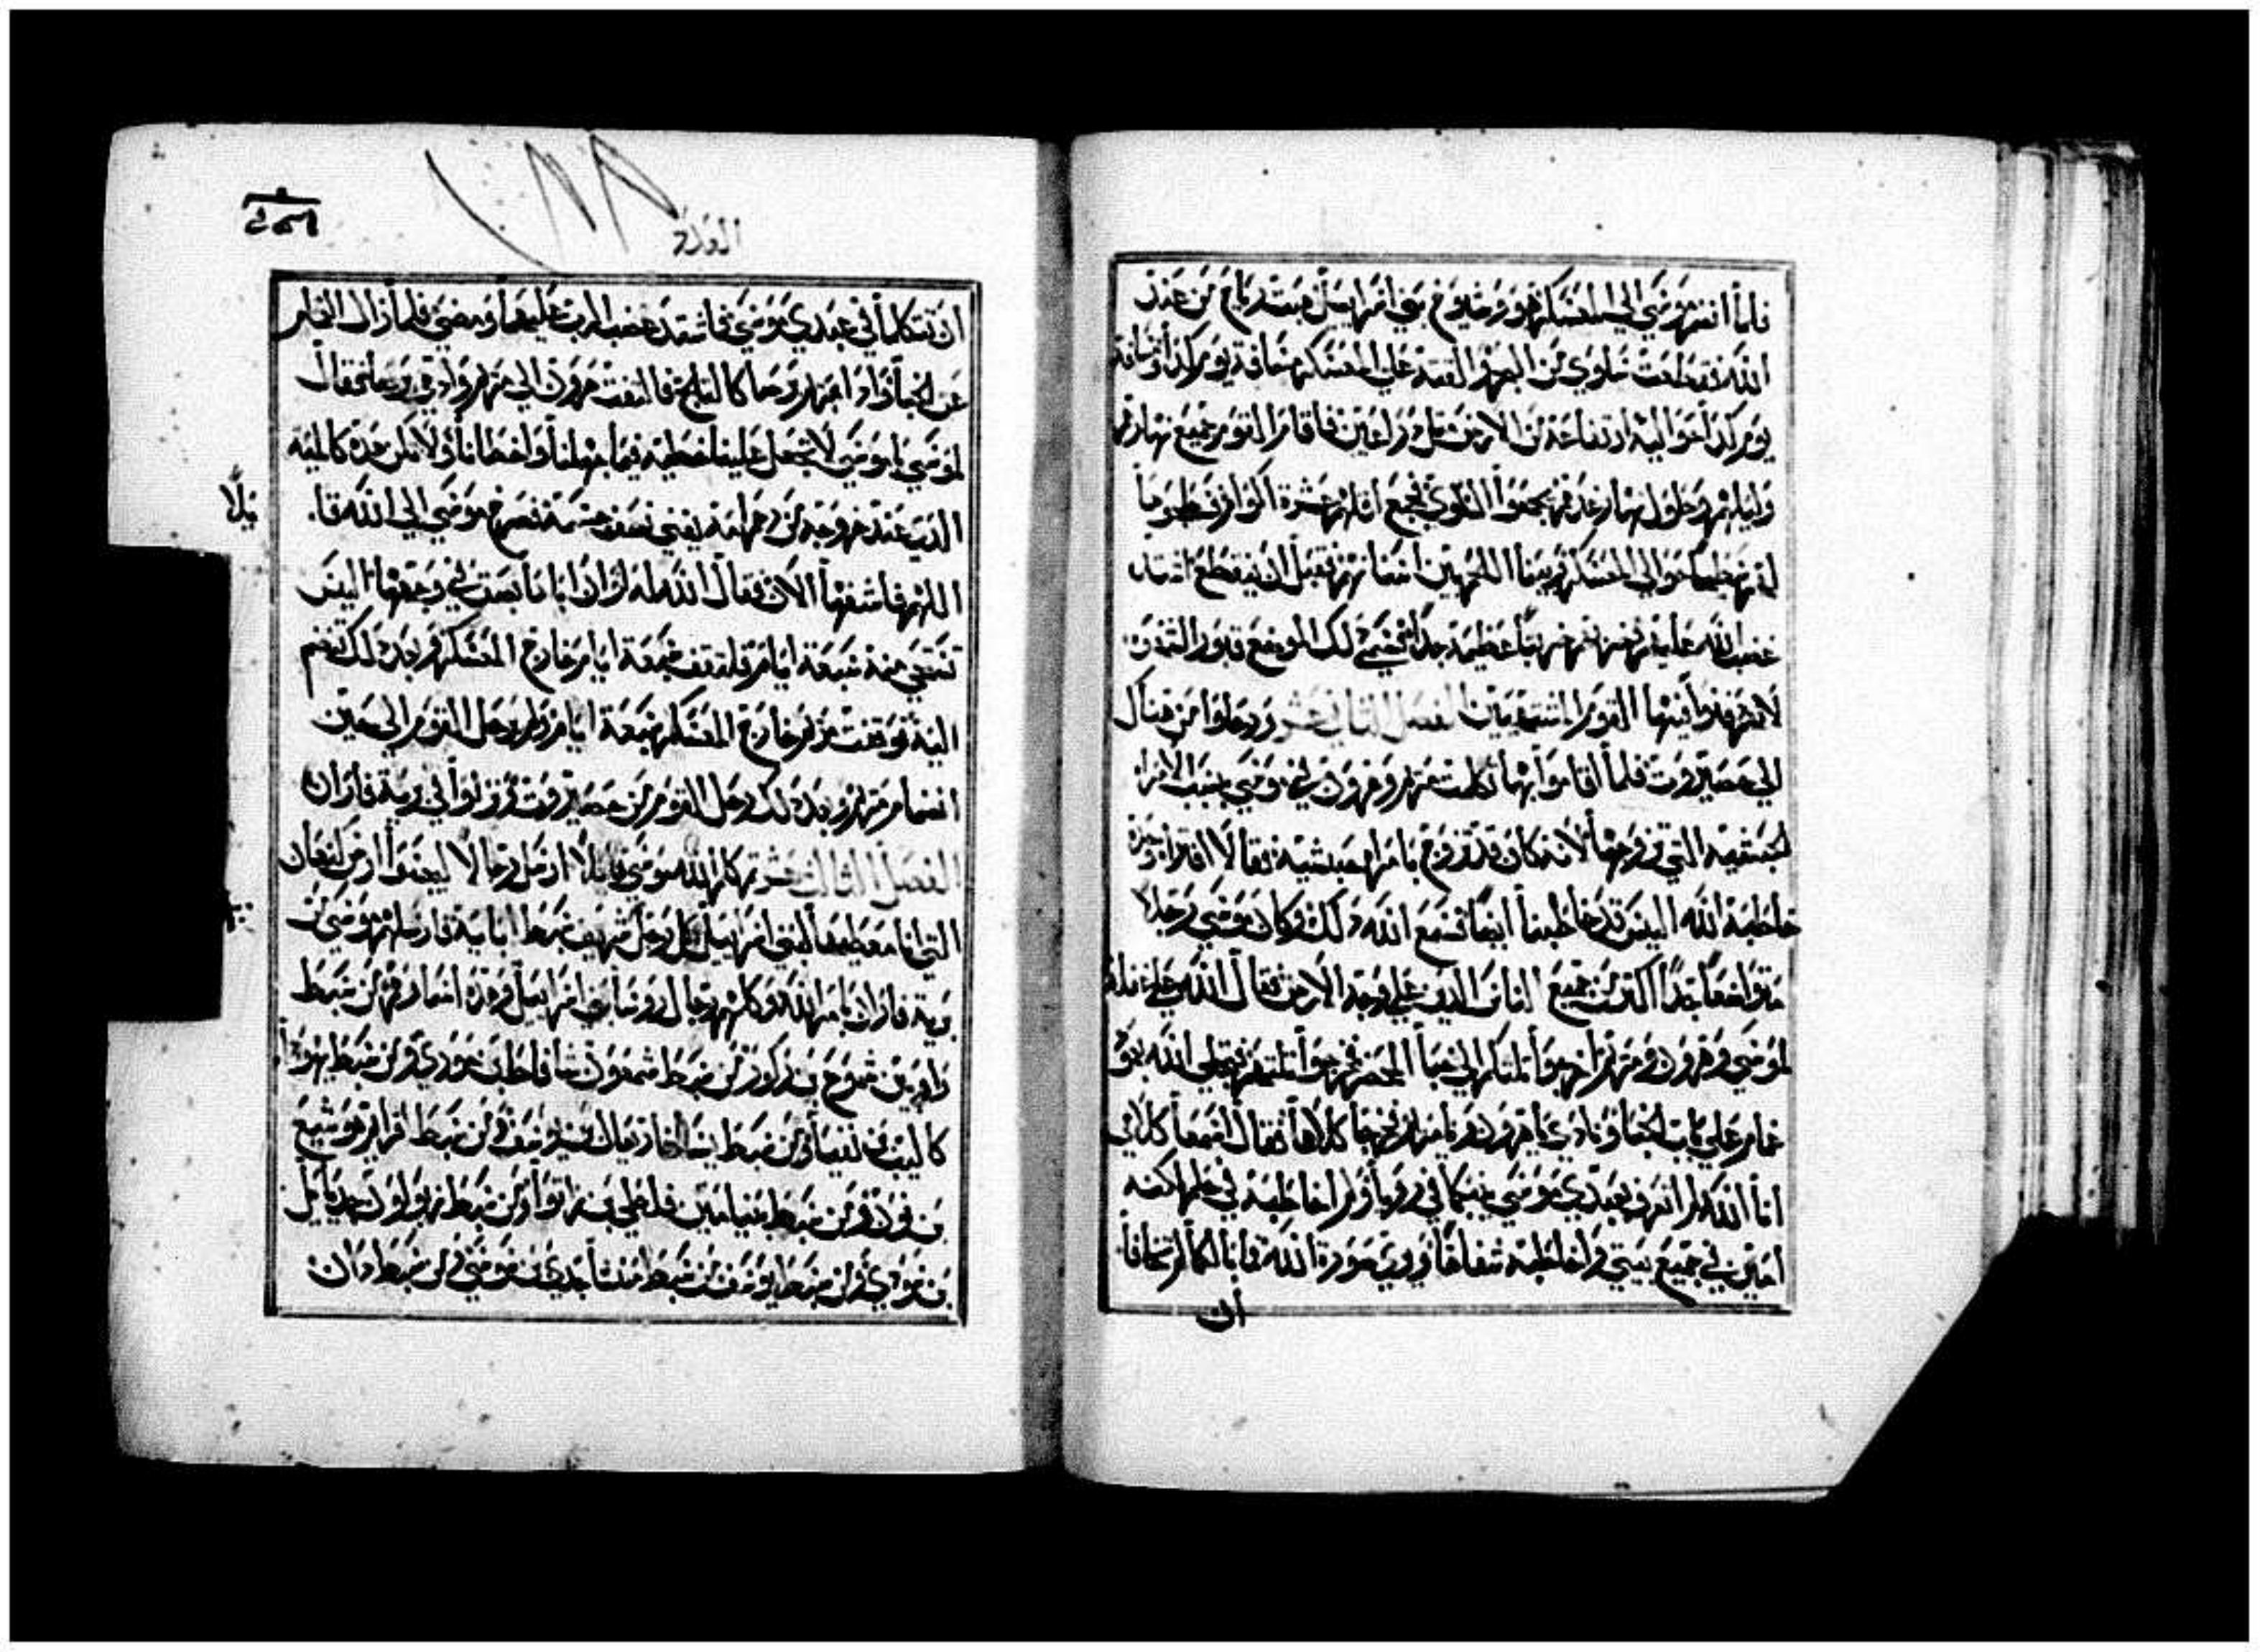 فلما انضم موسى الى المعسكر هو وشيوخ بني اسراييل هبت رياح من عند
الله فقطعت سلوي من البحر والقته على المعسكر مسافة يوم كذا ومسافة
يوم كذا حواليه ارتفاعه من الارض مثل ذراعين فاقام القوم جميع نهارهم
وليلهم وطول نهار غدهم يجمعوا السلوي فجمع اقلهم عشرة اكوار فسطحوها
لهم سطحا حوالى المعسكر فبينما اللحم بين اسنانهم قبل ان ينقطع اشتد
غضب الله عليهم فضربهم ضربة عظيمة جدا فسمي ذلك الموضع قبور الشهوة
لانهم دفنوا فيها القوم المشتهيين الفصل الثاني عشر ورحلوا من هناك
الى حصيروت فلما اقاموا بها تكلمت مريم وهرون في موسى بسبب الامراة
الحبشية التي تزوجها لانه كان قد تزوج بامراة حبشية فقالا اقترا وحده
خاطبه الله اليس قد خاطبنا ايضا فسمع الله ذلك وكان موسى رجلا
متواضعا جدا اكثر من جميع الناس الذين على وجه الارض فقال الله على غفلة
لموسى وهرون ومريم اخرجوا ثلثتكم الى خبأ المحضر فخرجوا ثلثتهم فتجلى الله بعمود
غمام على باب الخبأ ونادي يا هرون ويا مريم فخرجا كلاهما فقال اسمعا كلامي
انا الله لم اتعرف بعبدي موسى بينكما في رويا ولم اخاطبه في حلم لكنه
امين في جميع بيتي واخاطبه شفاها ورويه صورة الله فما بالكما لم تخافا
ان
التوراة
ان تتكلما في عبدي موسى فاشتد غضب الرب عليهما ومضى فلما زال الغمام
عن الخبأ واذا مريم وحا كالثلج فالتفت هرون الى مريم واذ هي برصا فقال
لموسى يا موسى لا تجعل علينا خطية فيما جهلنا واخطانا ولا تكن هذه كالميته
الذي عند خروجه من رحم امه يفنى نصف جسمه فصرخ موسى الى الله قا
يلا
اللهم فاشفها الان فقال الله له لو ان اباها بصق في وجهها اليس
تستحي منه سبعة ايام فلتقف سبعة ايام خارج المعسكر وبعد ذلك تنضم
اليه فوقفت مريم خارج المعسكر سبعة ايام ولم يرحل القوم الى حين
انضمام مريم وبعد ذلك رحل القوم من حصيروت ونزلوا في برية فاران
الفصل الثالث عشر ثم كلم الله موسى قايلا ارسل رجالا ليجسوا ارض كنعان
التي انا معطيها لبني اسراييل كل رجل شريف سبط ابايه فارسلهم موسى من
برية فاران بامر الله وكلهم رجال روسا بني اسراييل وهذه اسماوهم من سبط
راوبين شموع بن زكور من سبط شمعون شافاط بن حوري ومن سبط يهوذا
كاليب بن يفنيا ومن سبط ايساخار يغال بن يوسف ومن سبط افرايم هوشيع
بن نون ومن سبط بنيامين فلطي بن رافوا ومن سبط زبولون جديايل
بن سودي ومن سبط يوسف من سبط منشا جدي بن سوسي ومن سبط دان